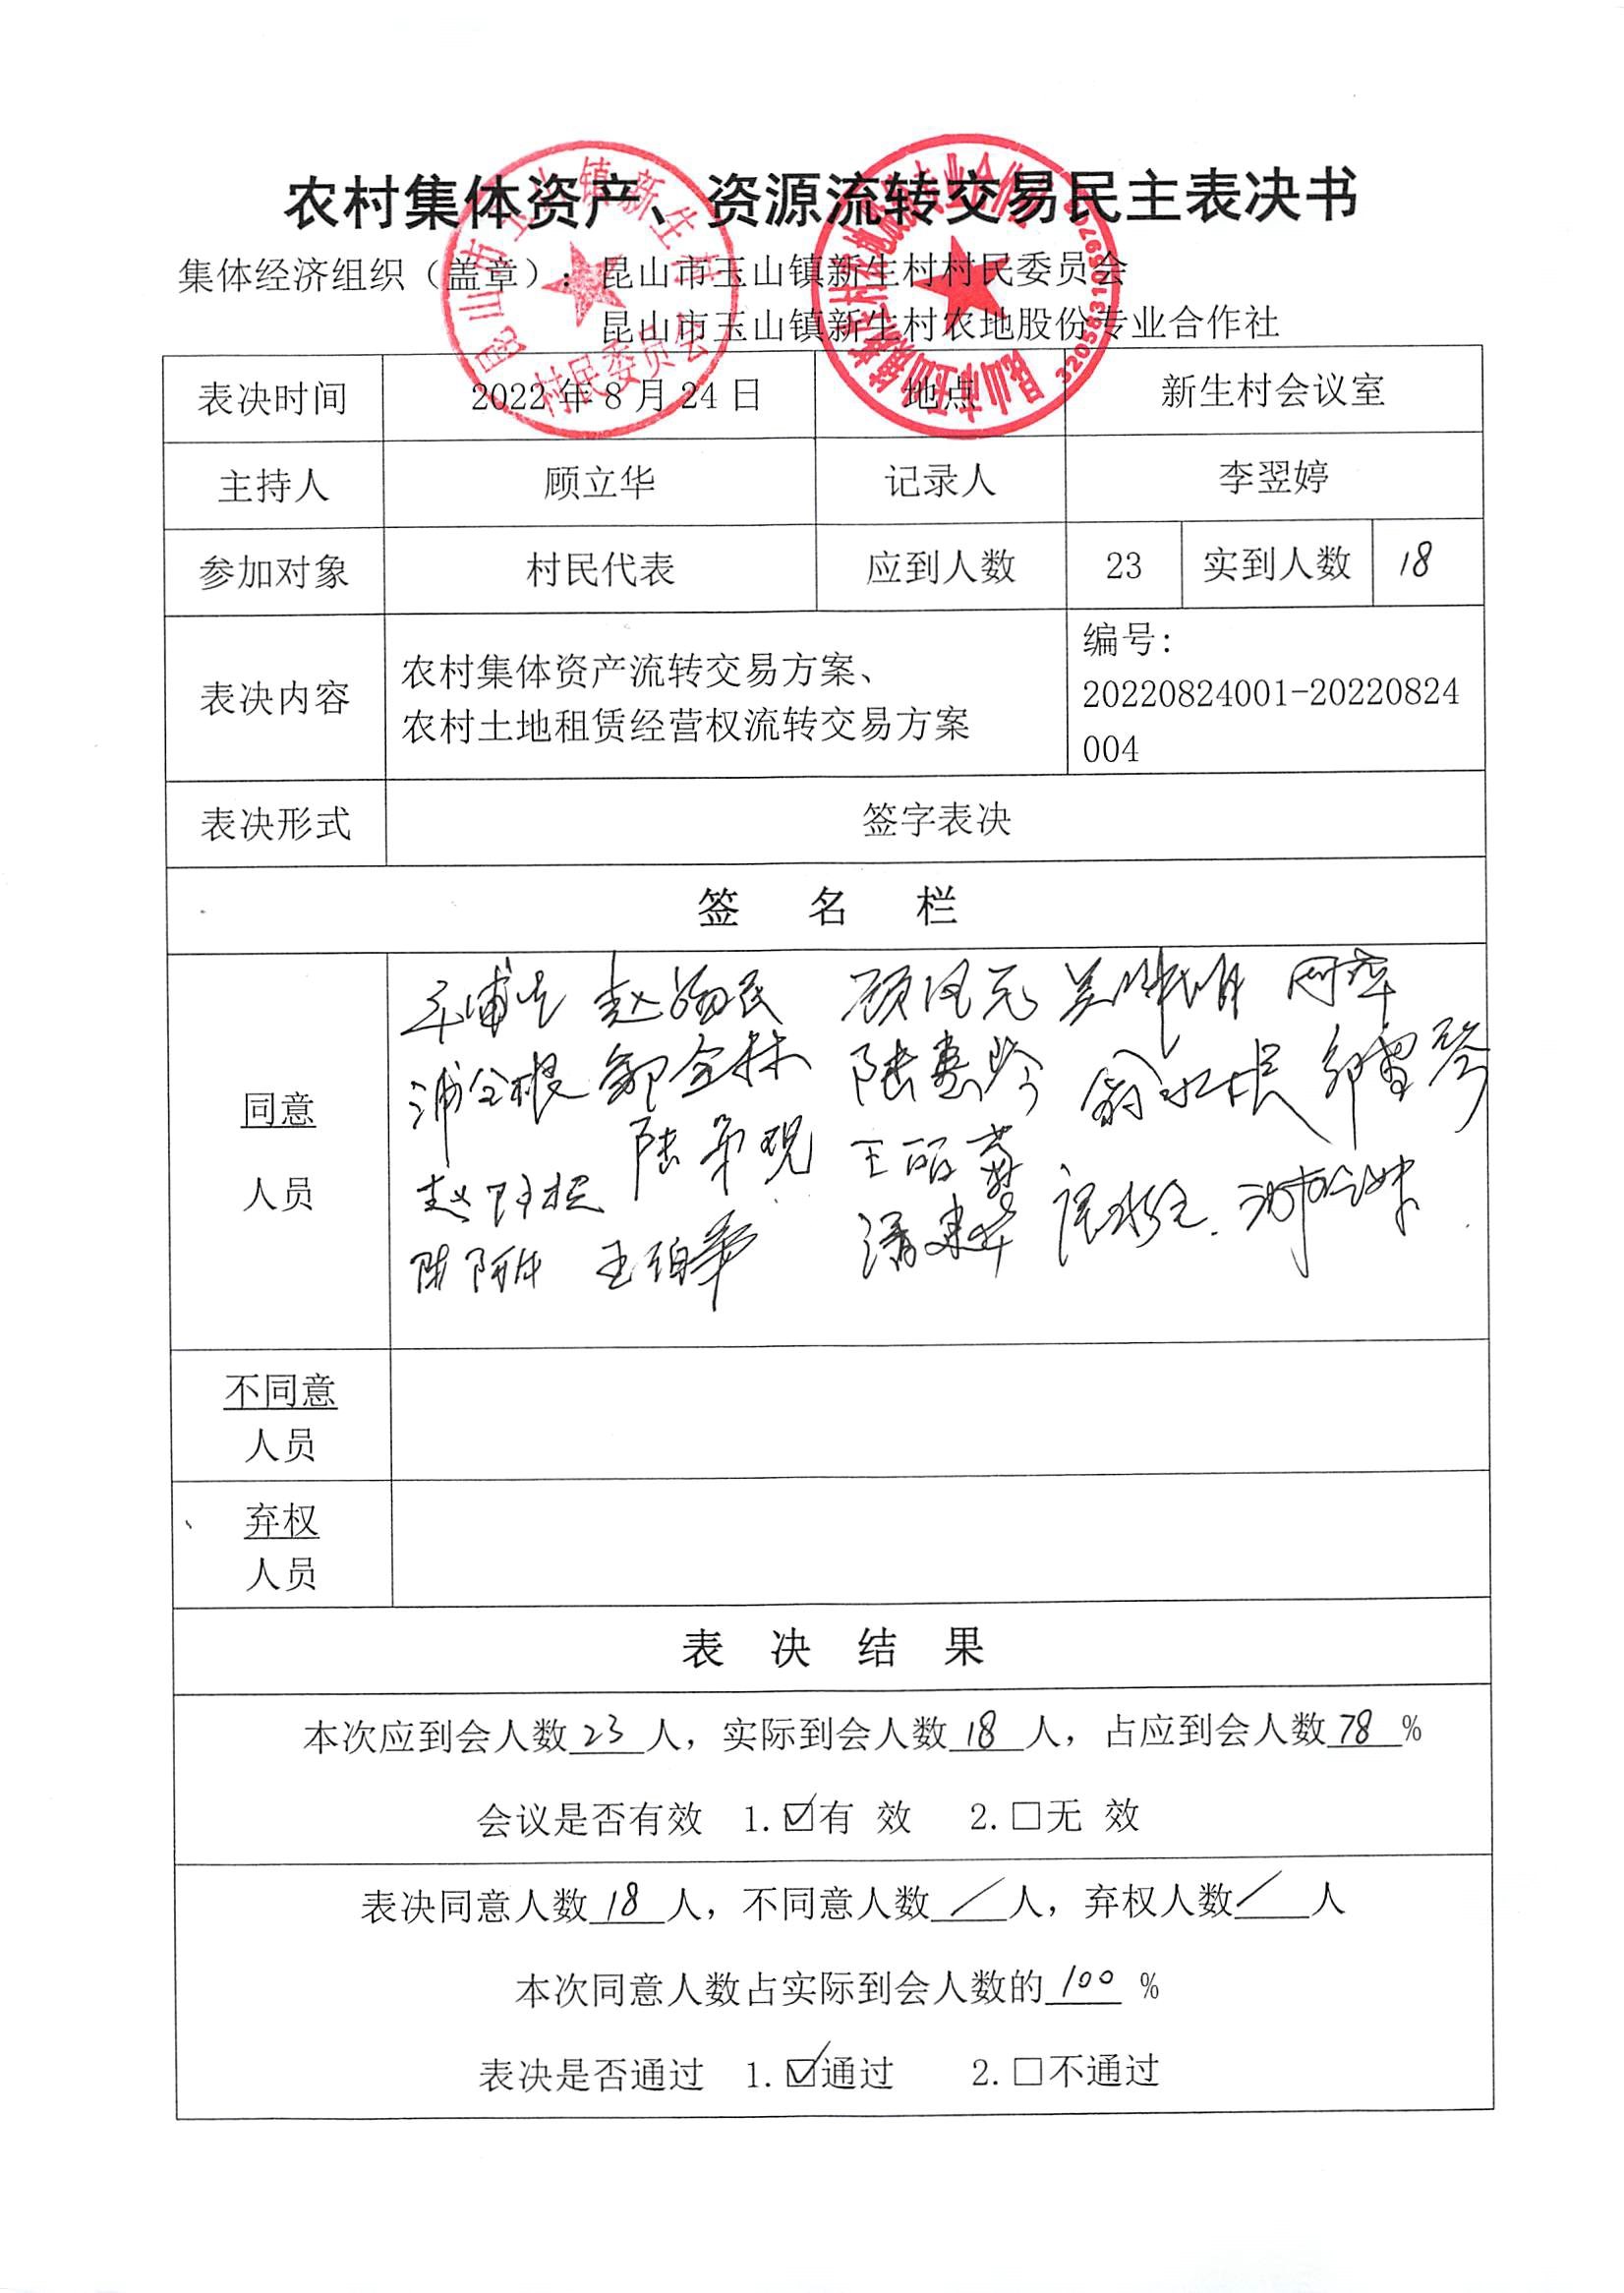 农村集体资产、资源流转交易民主表决书
集体经济组织（盖章）：昆山市玉山镇新生村村民委员会
昆山市玉山镇新生村农地股份专业合作社
昆山市玉山镇新生村
村民委员会
昆山市玉山镇新生村农地股份专业合作社
表决时间 2022 年 8 月 24 日 地点 新生村会议室
主持人 顾立华 记录人 李翌婷
参加对象 村民代表 应到人数 23 实到人数 18
表决内容 农村集体资产流转交易方案、
农村土地租赁经营权流转交易方案
编号：
20220824001-20220824
004
表决形式 签字表决
签 名 栏
同意
人员
浦全根 邹金林 陆惠珍 翁水根
王丽芳
王伯华 潘建华
不同意
人员
弃权
人员
表 决 结 果
本次应到会人数 23 人，实际到会人数 18 人，占应到会人数 78 %
会议是否有效 1.☑有 效 2.□无 效
表决同意人数 18 人，不同意人数 / 人，弃权人数 / 人
本次同意人数占实际到会人数的 100 %
表决是否通过 1.☑通过 2.□不通过